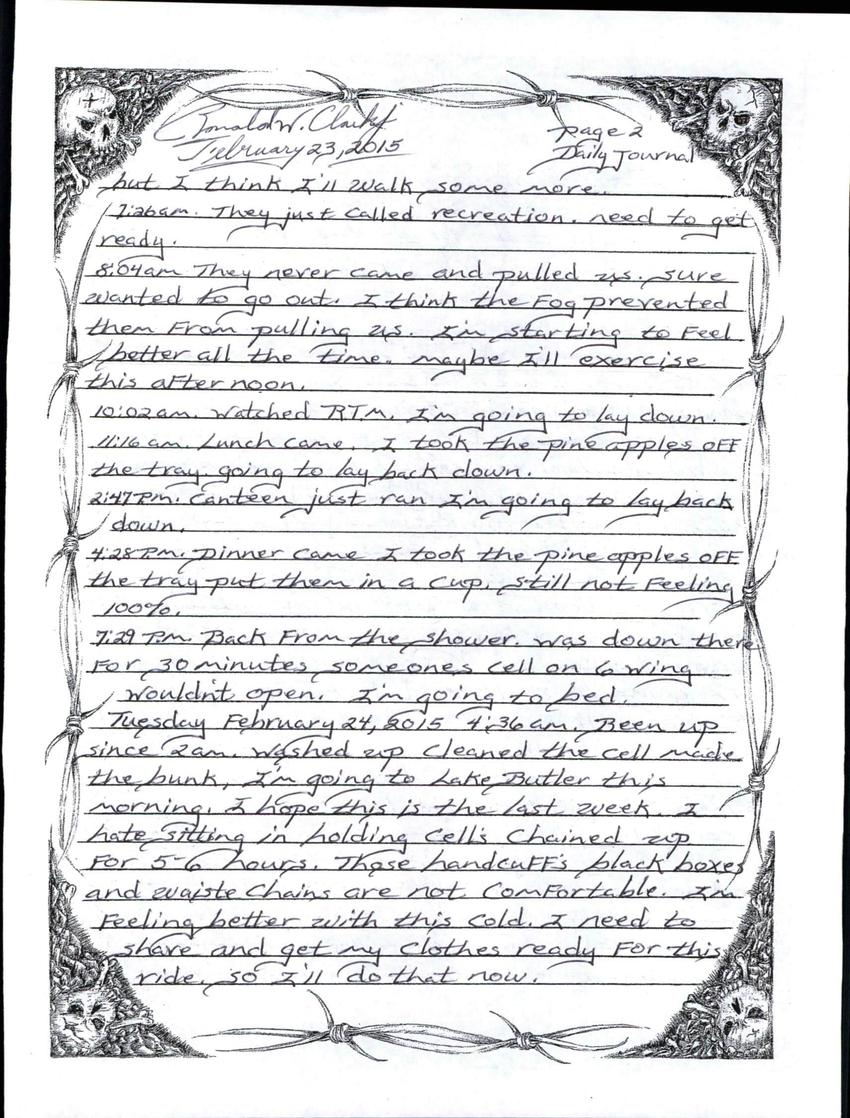 Ronald W. Clark Jr
page 2
February 23, 2015
Daily Journal
but I think I'll walk some more.
7:26am. They just called recreation. need to get
ready.
8:04am They never came and pulled us. sure
wanted to go out. I think the Fog prevented
them From pulling us. I'm starting to Feel
better all the time. maybe I'll exercise
this after noon.
10:02am. Watched R.T.M. I'm going to lay down.
11:16 am. Lunch came. I took the pine apples OFF
the tray. going to lay back down.
2:47 P.m. Canteen just ran I'm going to lay back
down.
4:28 P.m. Dinner came I took the pine apples OFF
the tray put them in a cup. Still not Feeling
100%.
7:29 P.m. Back From the shower. was down there
For 30 minutes someones cell on 6 wing
wouldn't open. I'm going to bed.
Tuesday February 24, 2015 4:36 am. Been up
since 2am. Washed up cleaned the cell made
the bunk, I'm going to Lake Butler this
morning. I hope this is the last week. I
hate sitting in holding cell's chained up
For 5-6 hours. Those handcuFF's black boxes
and waiste Chains are not ComFortable. I'm
Feeling better with this cold. I need to
share and get my clothes ready For this
ride. so I'll do that now.